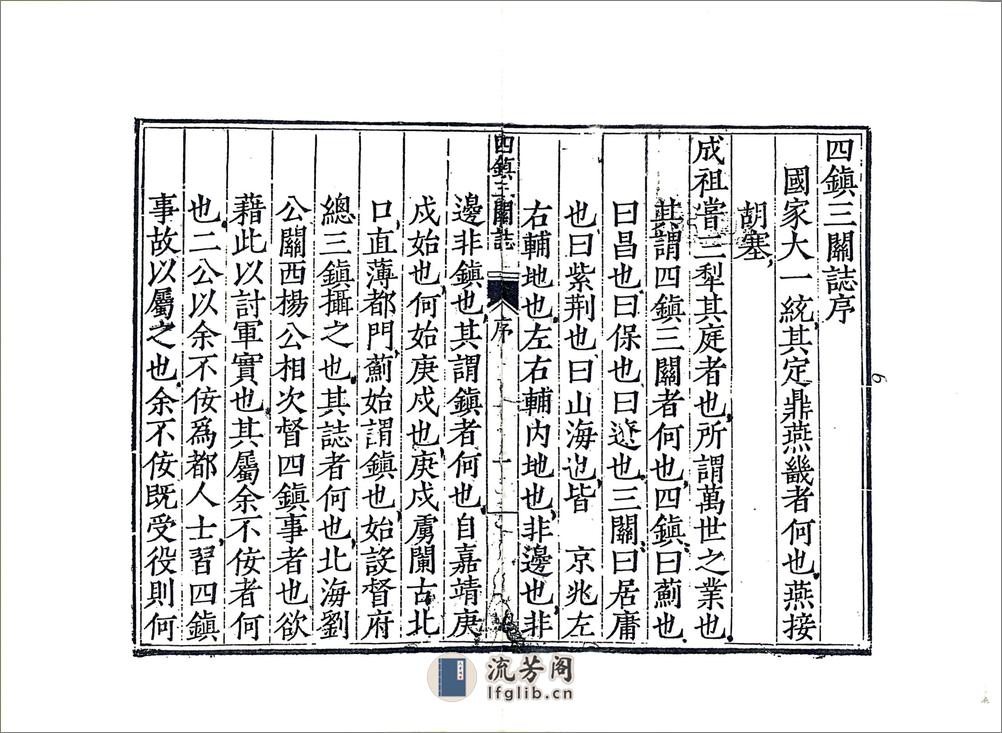 四鎮三關誌序
國家大一統其定鼎燕畿者何也燕接
胡塞
成祖嘗三犁其庭者也所謂萬世之業也
其謂四鎮三關者何也四鎮曰薊也
曰昌也曰保也曰遼也三關曰居庸
也曰紫荆也曰山海也皆 京兆左
右輔地也左右輔内地也非邊也非
四鎮三關誌 序
邊非鎮也其謂鎮者何也自嘉靖庚
戍始也何始庚戍也庚戍虜闌古北
口直薄都門薊始謂鎮也始設督府
總三鎮攝之也其誌者何也北海劉
公關西楊公相次督四鎮事者也欲
藉此以討軍實也其屬余不佞者何
也二公以余不佞爲都人士習四鎮
事故以屬之也余不佞既受役則何
6
流芳阁
lfglib.cn